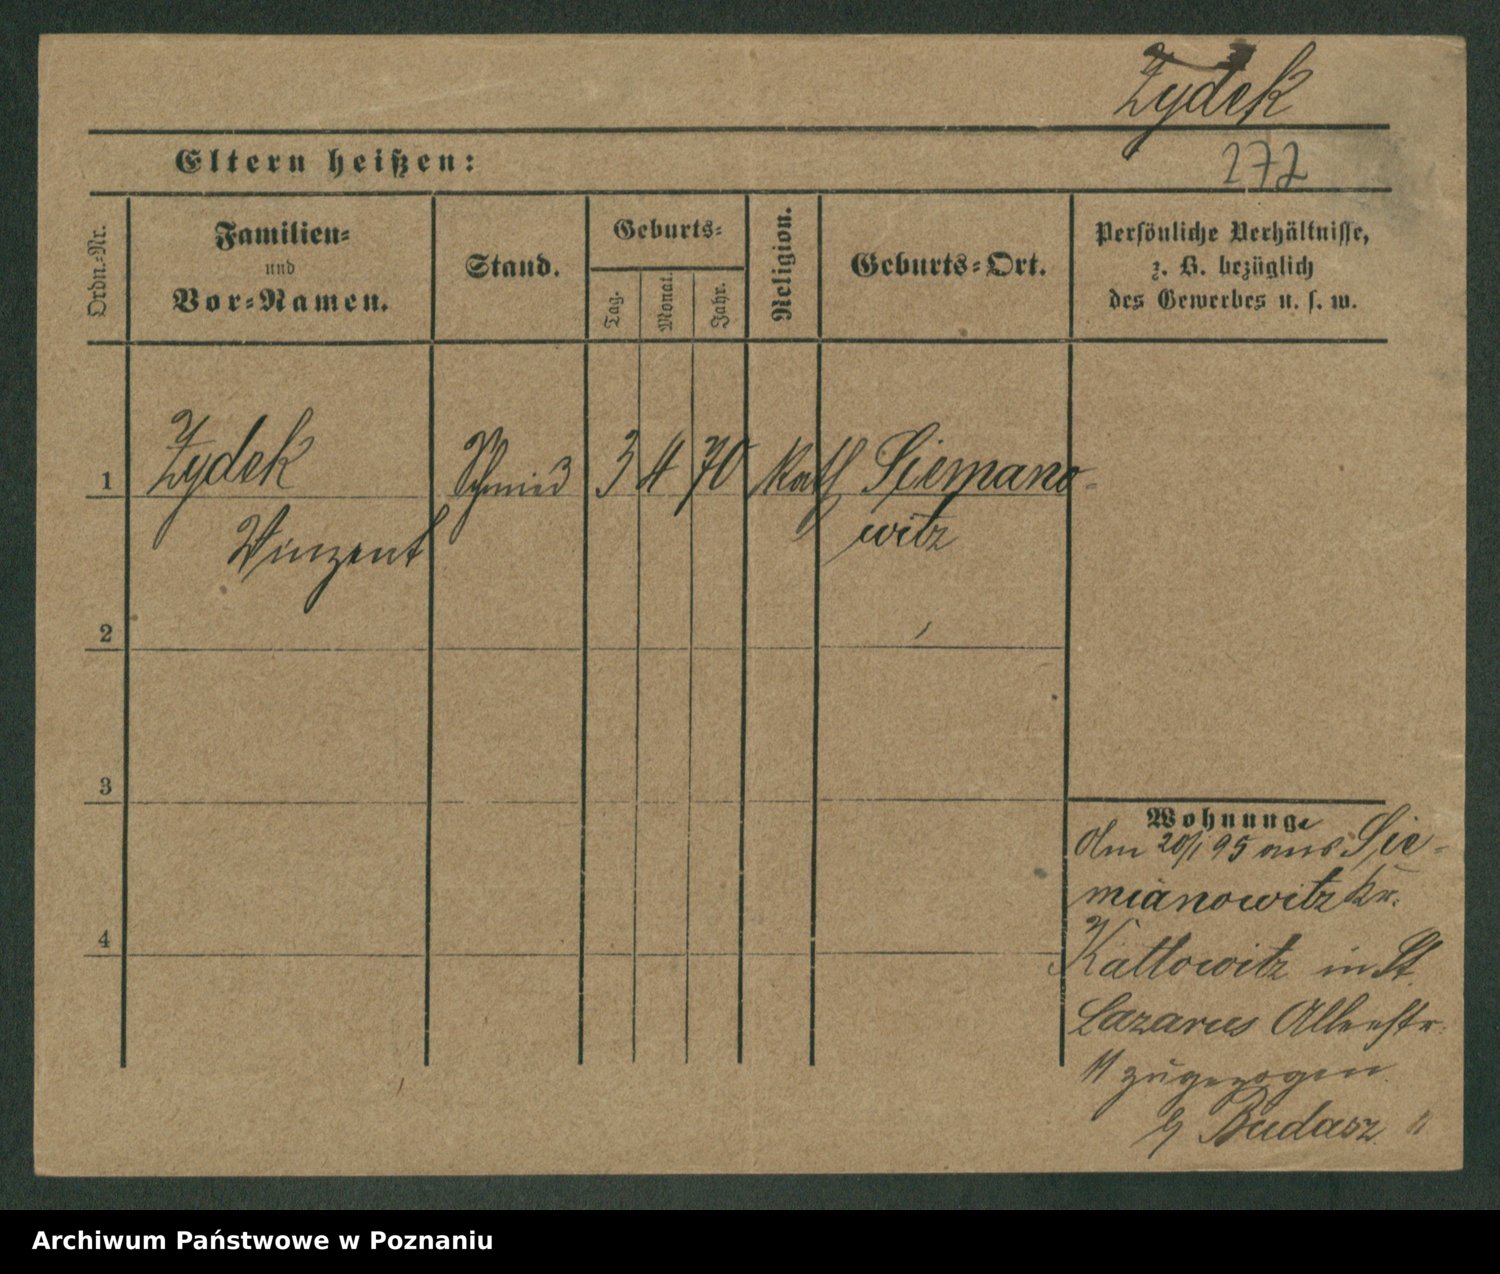 Zydek
Eltern heißen:
272
Ordn.-Nr.
Familien-
und
Vor-Namen.
Stand.
Geburts-
Tag.
Monat.
Jahr.
Religion.
Geburts-Ort.
Persönliche Verhältnisse,
z. B. bezüglich
des Gewerbes u. s. w.
1 Zydek Schmied 3 4 70 Kath Siemano-
Vinzent witz
2
3
Wohnung.
Am 20/1 95 aus Sie-
mianowitz Kr.
4
Kattowitz in St.
Lazarus Alleestr.
11 zugezogen
b/ Budasz
Archiwum Państwowe w Poznaniu